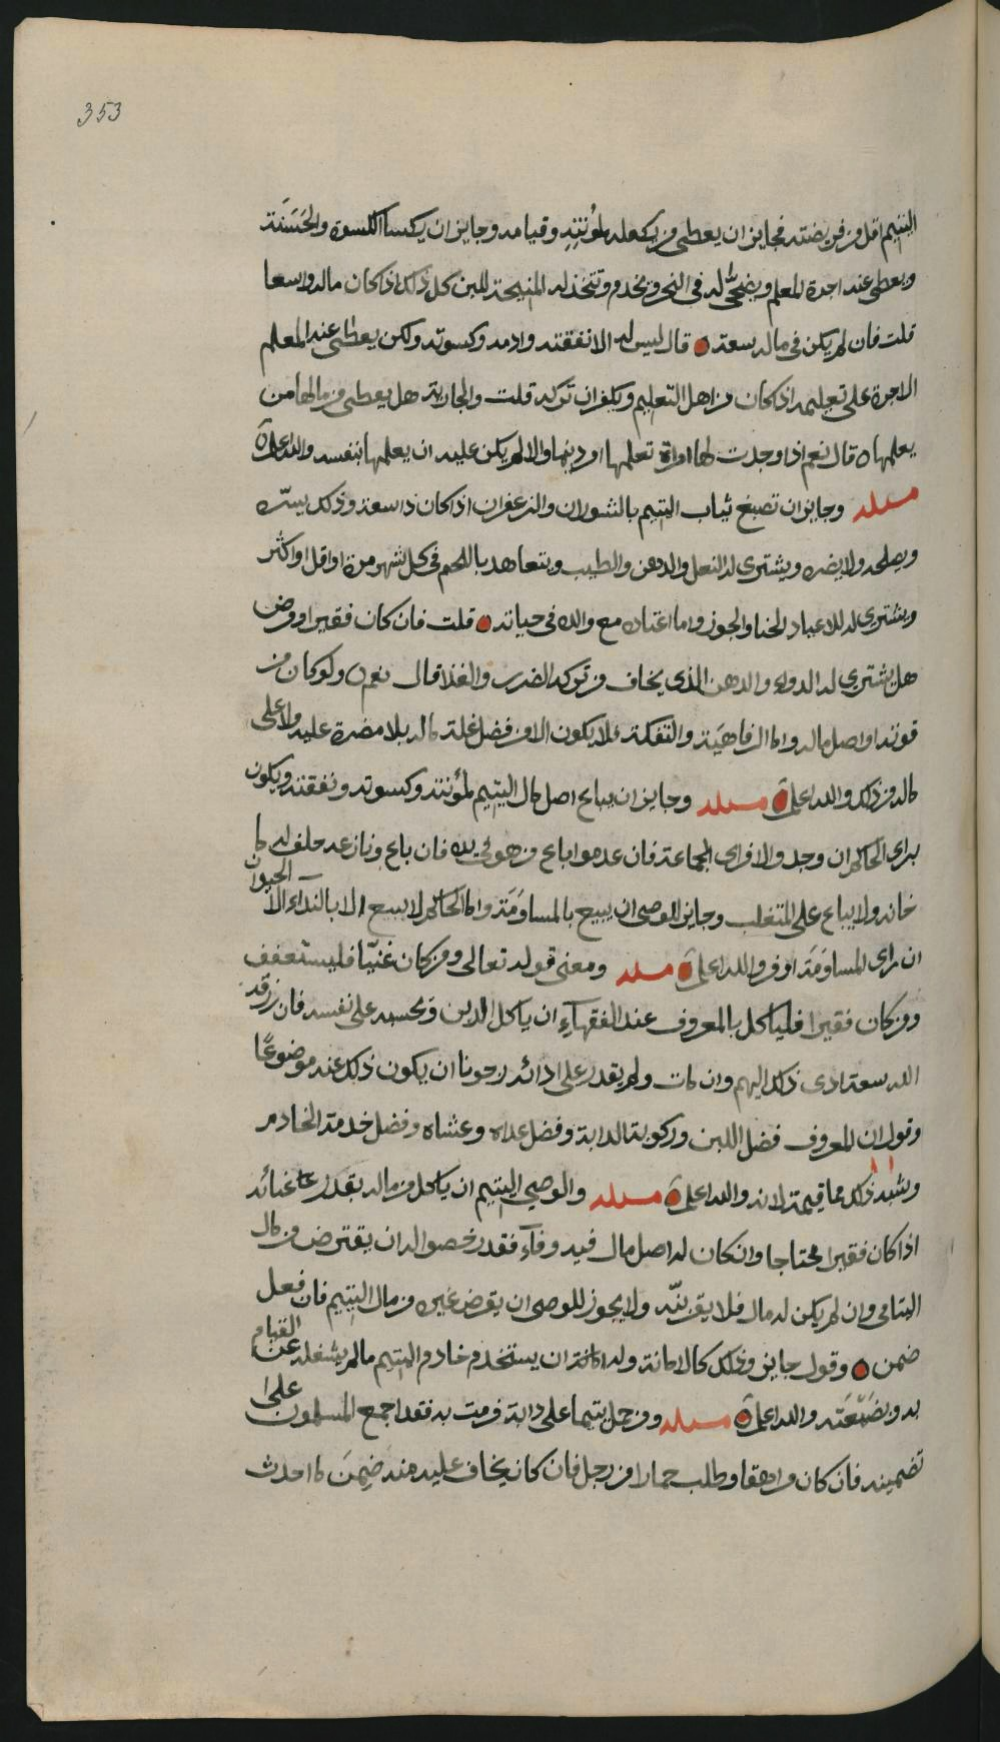 353
اليتيم اقل من فريضته فجايز ان يعطى من يكفله لمؤنته وقيامه وجايز ان يكسا الكسوة الحسنة
ويعطى عنه اجرة المعلم ويضحى له في النحر ويخدم وتتخذ له المنيحة للبن كل ذلك اذا كان ماله واسعا
قلت فان لم يكن في ماله سعة قال ليس له الا نفقته وادمه وكسوته ولكن يعطى عنه المعلم
الاجرة على تعليمه اذا كان من اهل التعليم ويكفران تركه قلت والجارية هل يعطى من مالها من
يعلمها قال نعم اذا وجدت لها امراة تعلمها امر دينها والا لم يكن عليه ان يعلمها بنفسه والله اعلم
مسئله وجايز ان تصبغ ثياب اليتيم بالشوران والزعفران اذا كان ذا سعة وذلك يسره
ويصلحه ولا يضره ويشتري له النعل والدهن والطيب ويتعاهد باللحم في كل شهر مرة او اقل او اكثر
ويشتري له للاعياد الحنا والجوز وما اعتاده مع والده في حياته قلت فان كان فقيرا ومرض
هل يشتري له الدواء والدهن الذي يخاف من تركه الضرر والغذا قال نعم ولو كان من
قوته او اصل ماله واما الرفاهية والتفكة فلا يكون الا من فضل غلة ماله بلا مضرة عليه ولا على
ماله من ذلك والله اعلم مسئله وجايز ان يباع اصل مال اليتيم لمؤنته وكسوته ونفقته ويكون
براي الحاكم ان وجد والا فراي الجماعة فان عدموا باع من هو في يده فان باع ونازعه حلف له ما
خانه ولا يباع على المتغلب وجايز للوصي ان يبيع بالمساومة واما الحاكم لا يبيع الا بالنداء الا الحيوان
ان راى المساومة اوفر والله اعلم مسئله ومعنى قوله تعالى ومن كان غنيا فليستعفف
ومن كان فقيرا فلياكل بالمعروف عند الفقهاء ان ياكل الدين ويحسبه على نفسه فان رزقه
الله سعة ادى ذلك اليهم وان مات ولم يقدر على ادائه رجونا ان يكون ذلك عنه موضوعا
وقول ان المعروف فضل اللبن وركوبة الدابة وفضل غداه وعشاه وفضل خدمة الخادم
وشبه ذلك مما قيمة لانه والله اعلم مسئله والوصي اليتيم ان ياكل من ماله بقدر عنائه
اذا كان فقيرا محتاجا وان كان له اصل مال فيه وفاء فقد رخصوا له ان يقترض من مال
اليتامى وان لم يكن له مال فلا يقربنه ولا يجوز للوصي ان يقرض غيره من مال اليتيم فان فعل
ضمن وقول جايز وذلك كالامانة وله ان يستخدم خادم اليتيم ما لم يشغله عن القيام
به وبضيعته والله اعلم مسئله ومن حمل يتيما على دابة فرمت به فقد اجمع المسلمون على
تضمينه فان كان مراهقا وطلب حمارا من رجل فان كان يخاف عليه منه ضمن ما احدث